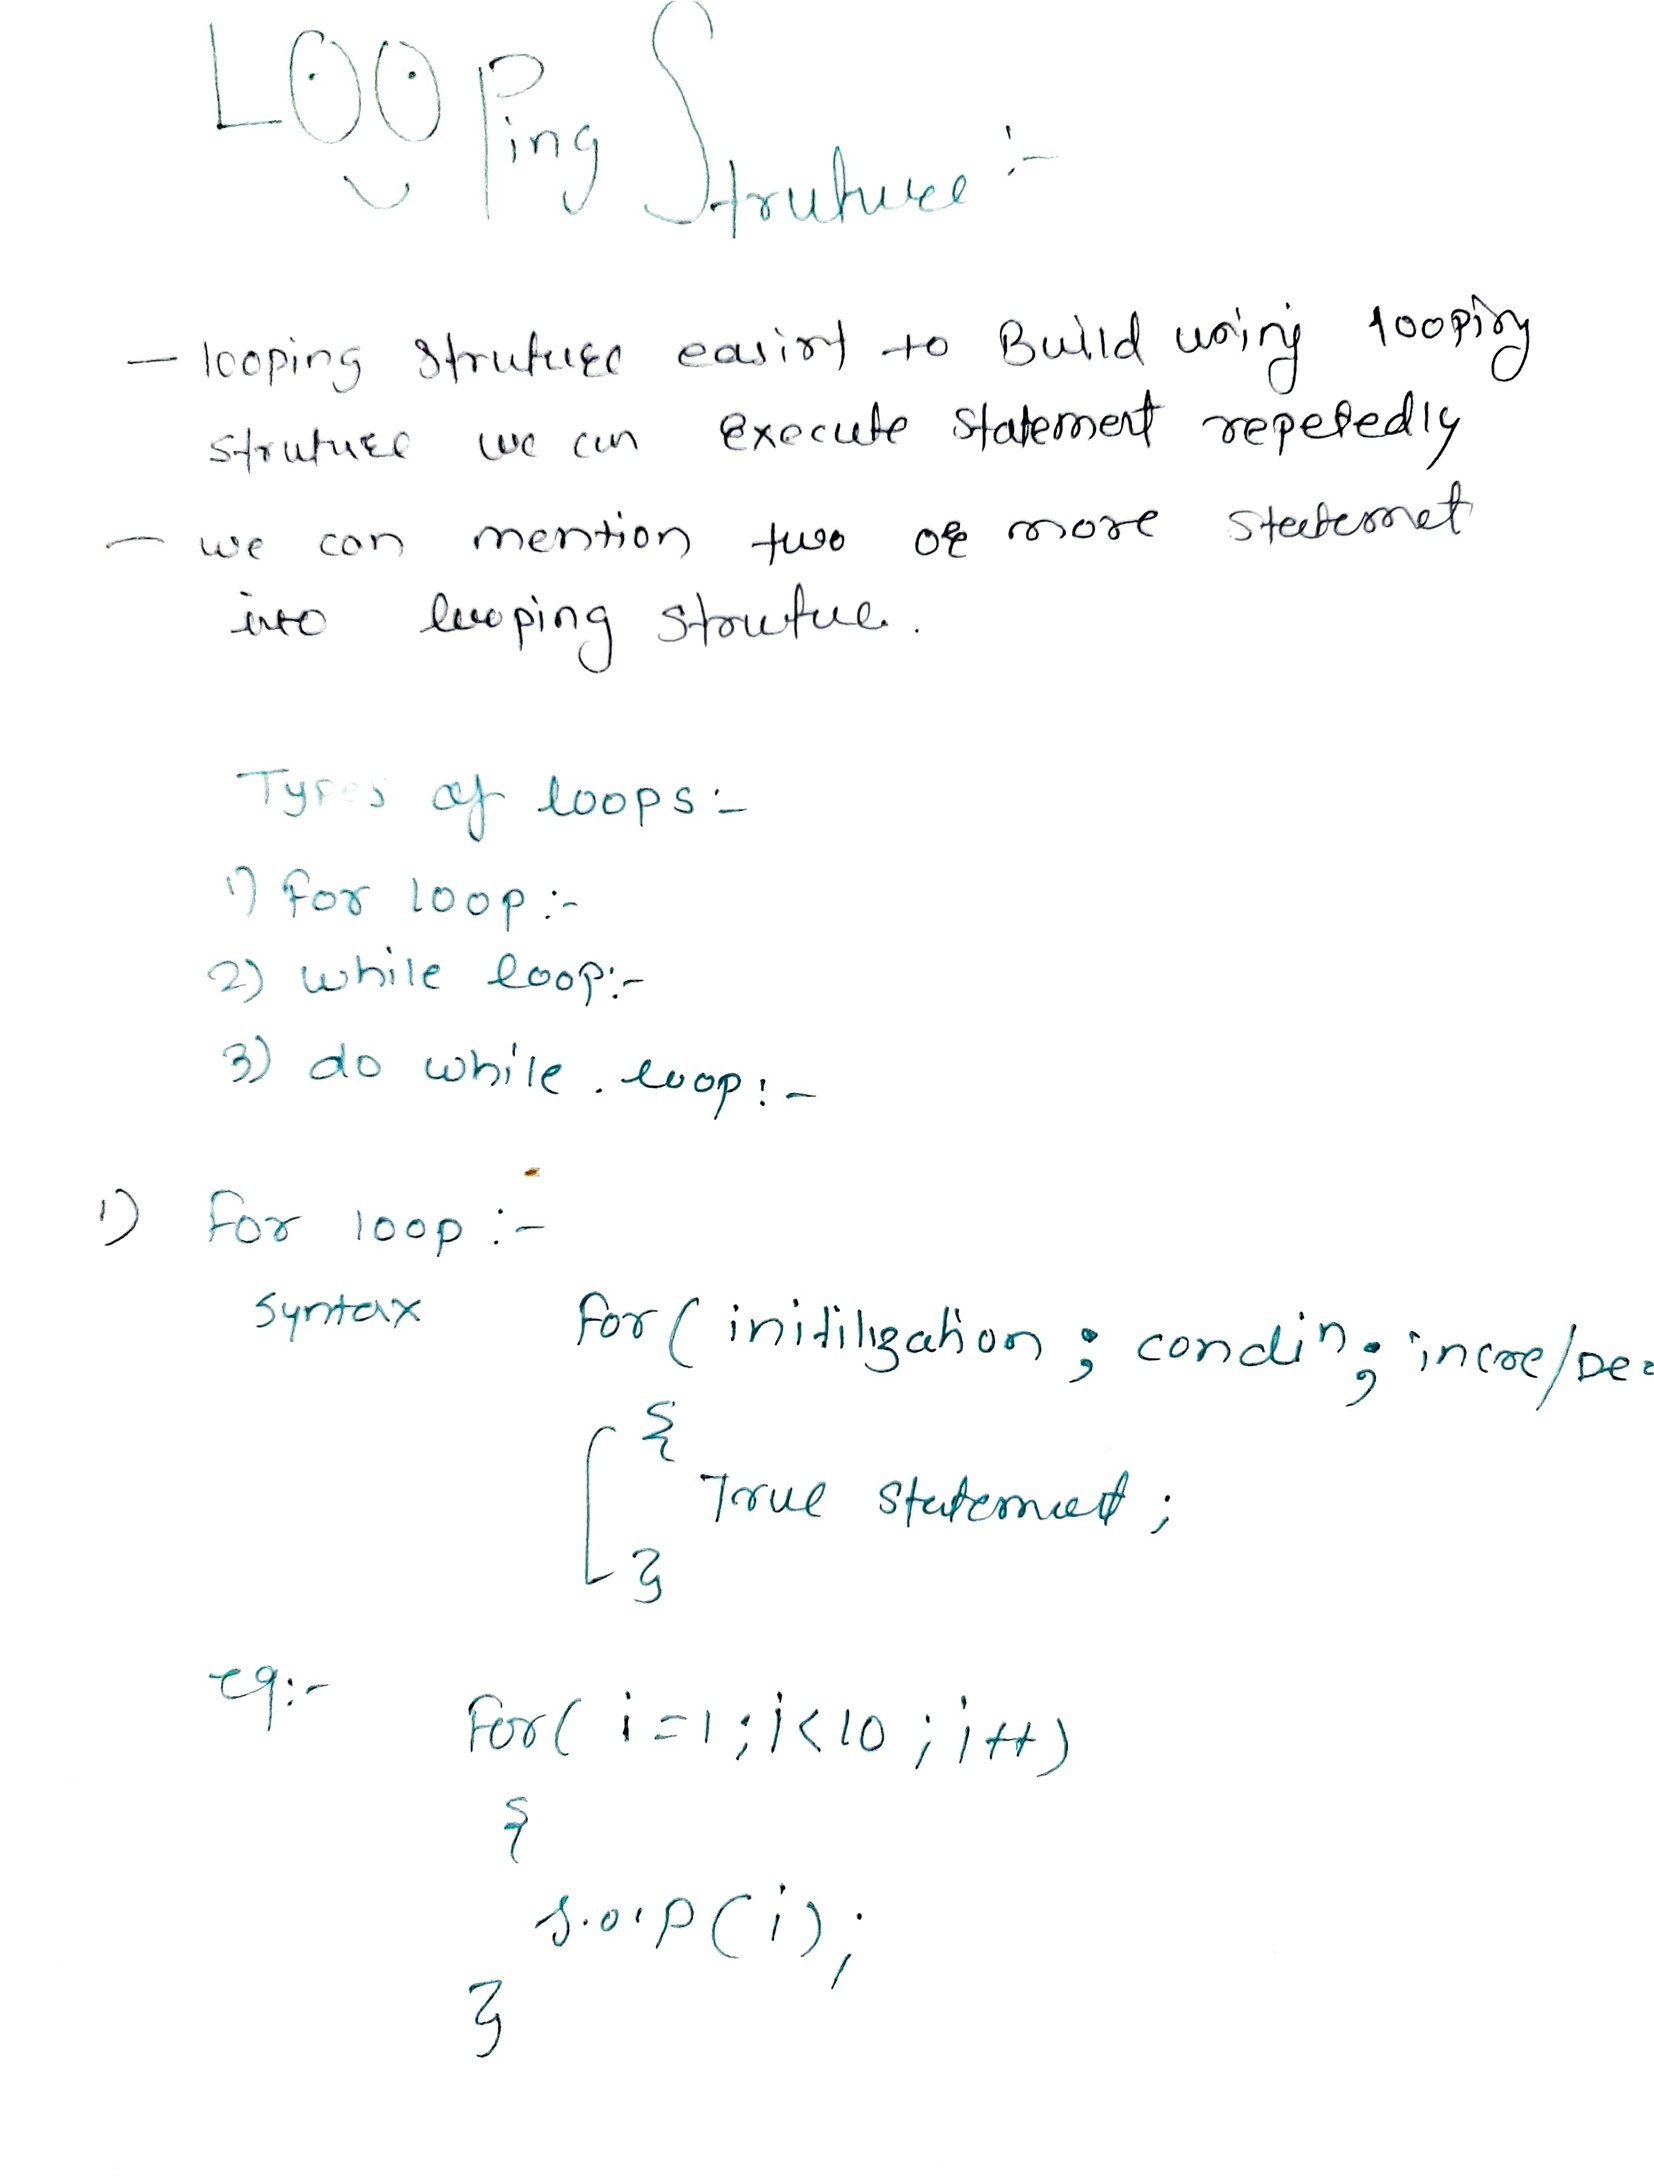 LOOPing Struture :-
- looping struture easist to Build using looping
struture we can execute statement repetedly
- we can mention two or more statemet
into looping strutue.
Types of loops :-
1) for loop :-
2) while loop :-
3) do while loop :-
1) for loop :-
syntax for ( initilization ; condin ; incre/De
{
True statement ;
}
eg :-
for( i=1 ; i<10 ; i++)
{
s.o.p(i);
}